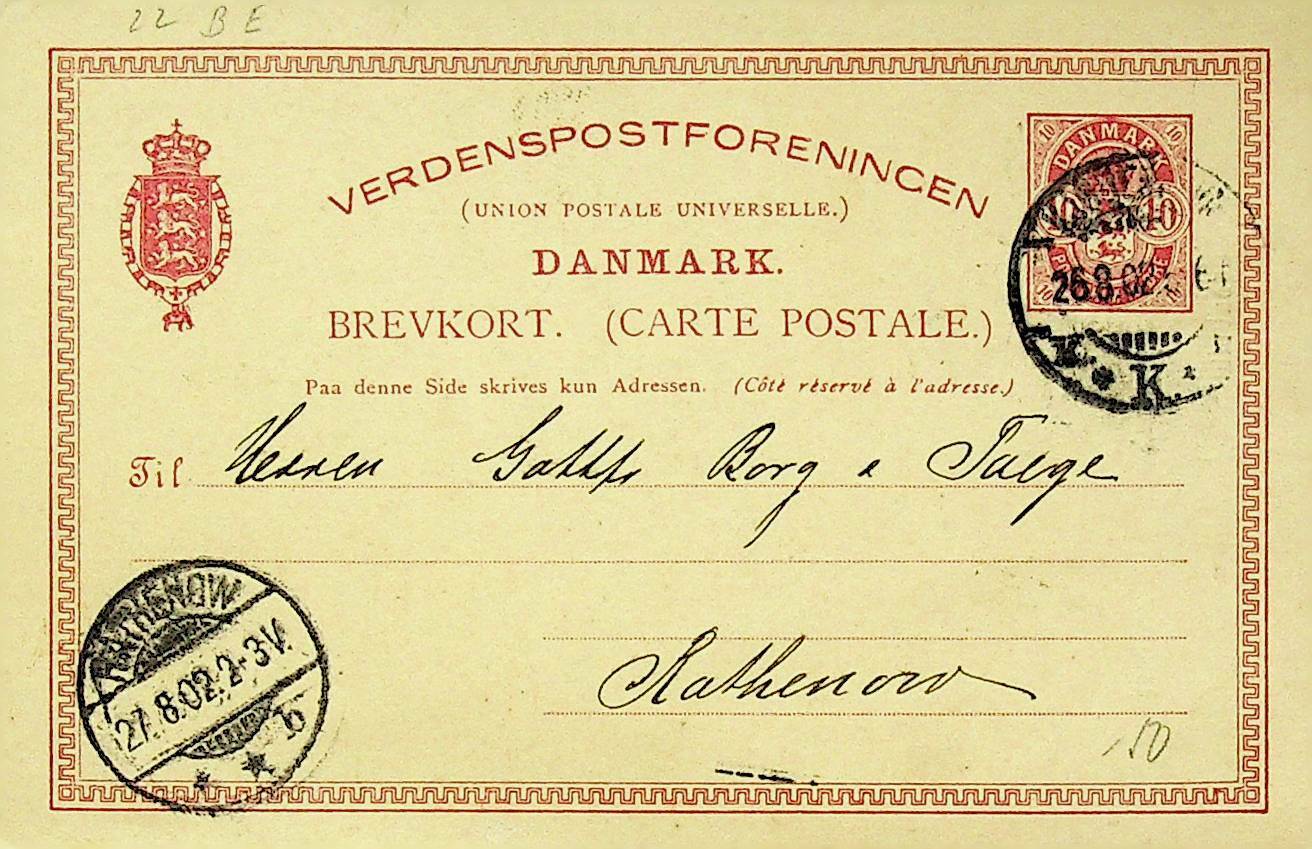 22 BE
VERDENSPOSTFORENINGEN
(UNION POSTALE UNIVERSELLE.)
DANMARK.
BREVKORT. (CARTE POSTALE.)
Paa denne Side skrives kun Adressen. (Côté réservé à l'adresse.)
DANMARK
10 10
10 10
10
26.8.02
K. K.
Til Herren Borg & Taege
Rathenow
RATHENOW
27.8.02.2-3V.
b
150